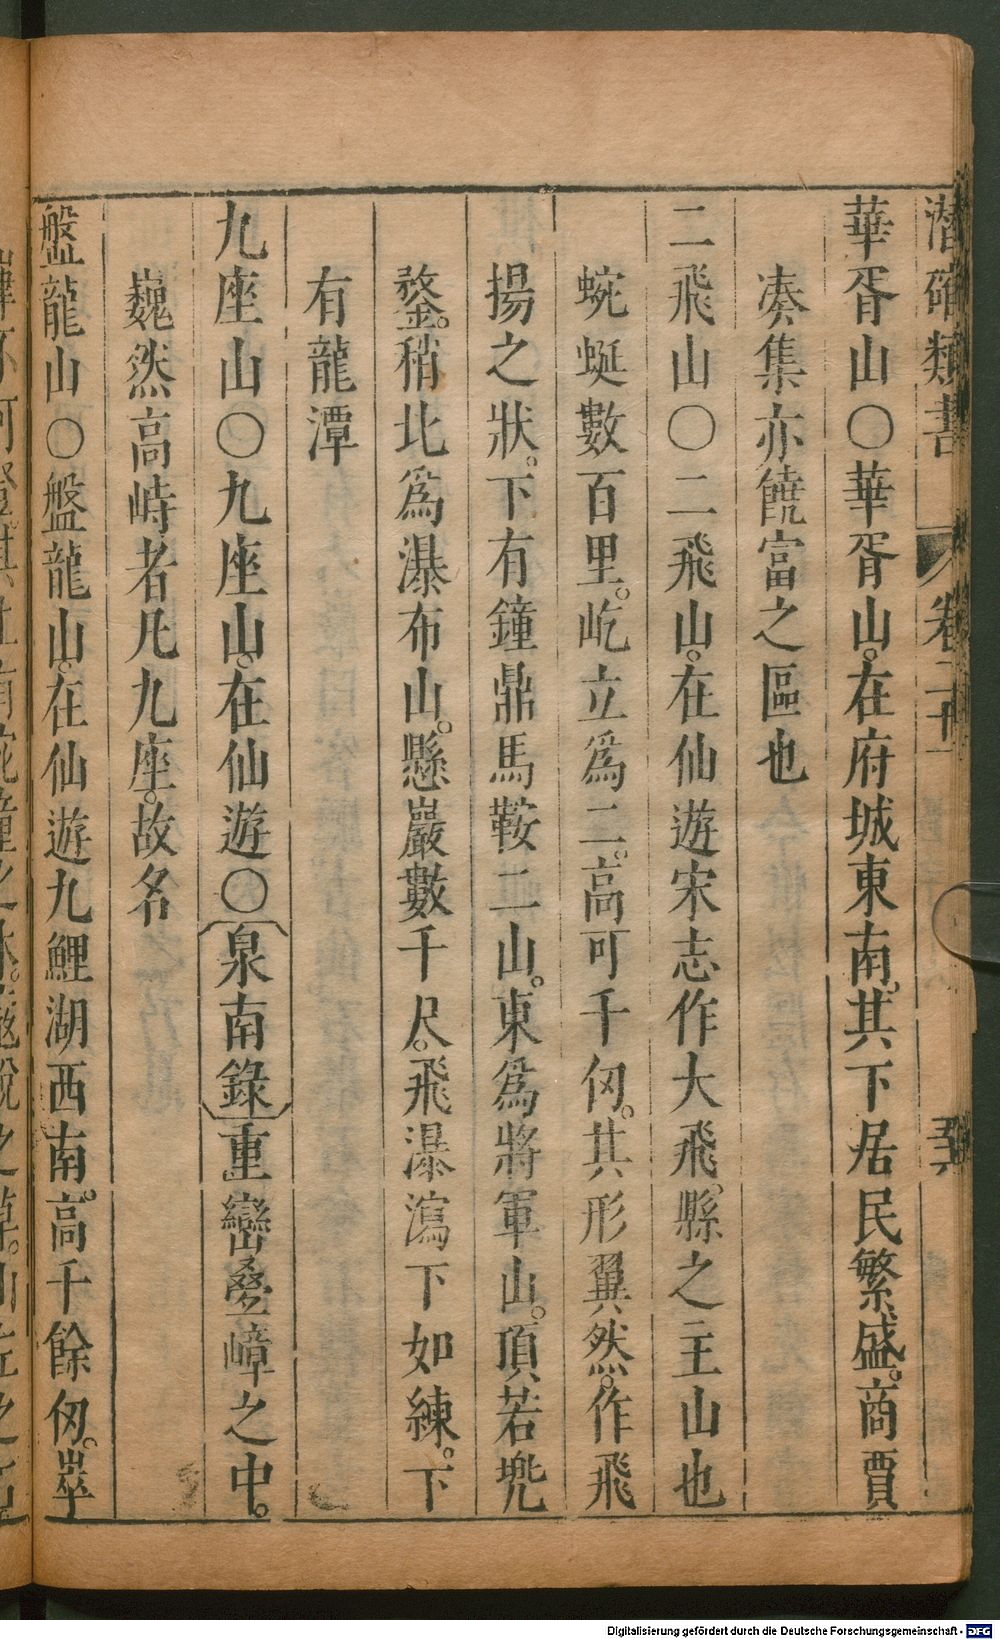 潛確類書 卷二十
華胥山〇華胥山。在府城東南。其下居民繁盛。商賈
湊集亦饒富之區也
二飛山〇二飛山。在仙遊宋志作大飛。縣之主山也
蜿蜒數百里。屹立爲二。高可千仞。其形翼然。作飛
揚之狀。下有鐘鼎馬鞍二山。東爲將軍山。頂若兠
鍪。稍北爲瀑布山。懸巖數千尺。飛瀑瀉下如練。下
有龍潭
九座山〇九座山。在仙遊〇泉南錄重巒疊嶂之中。
巍然高峙者凡九座。故名
盤龍山〇盤龍山。在仙遊九鯉湖西南。高千餘仞。崒
Digitalisierung gefördert durch die Deutsche Forschungsgemeinschaft - DFG